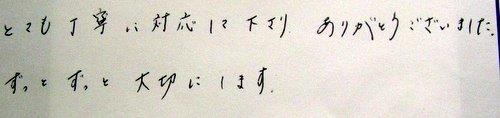 とても丁寧に対応して下さり ありがとうございました。
ずっとずっと大切にします。